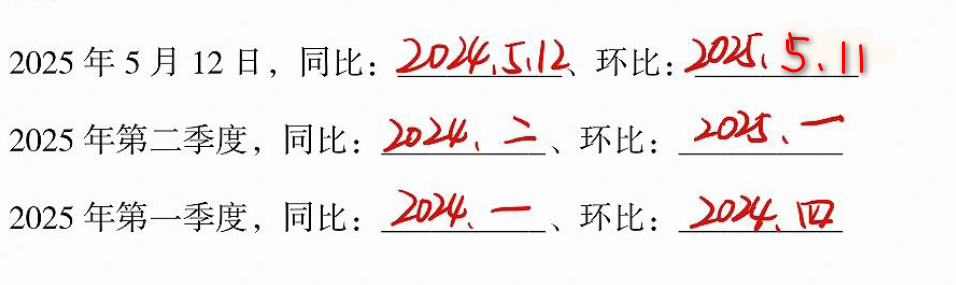 2025年5月12日，同比：2024.5.12、环比：2025.5.11
2025年第二季度，同比：2024.二、环比：2025.一
2025年第一季度，同比：2024.一、环比：2024.四